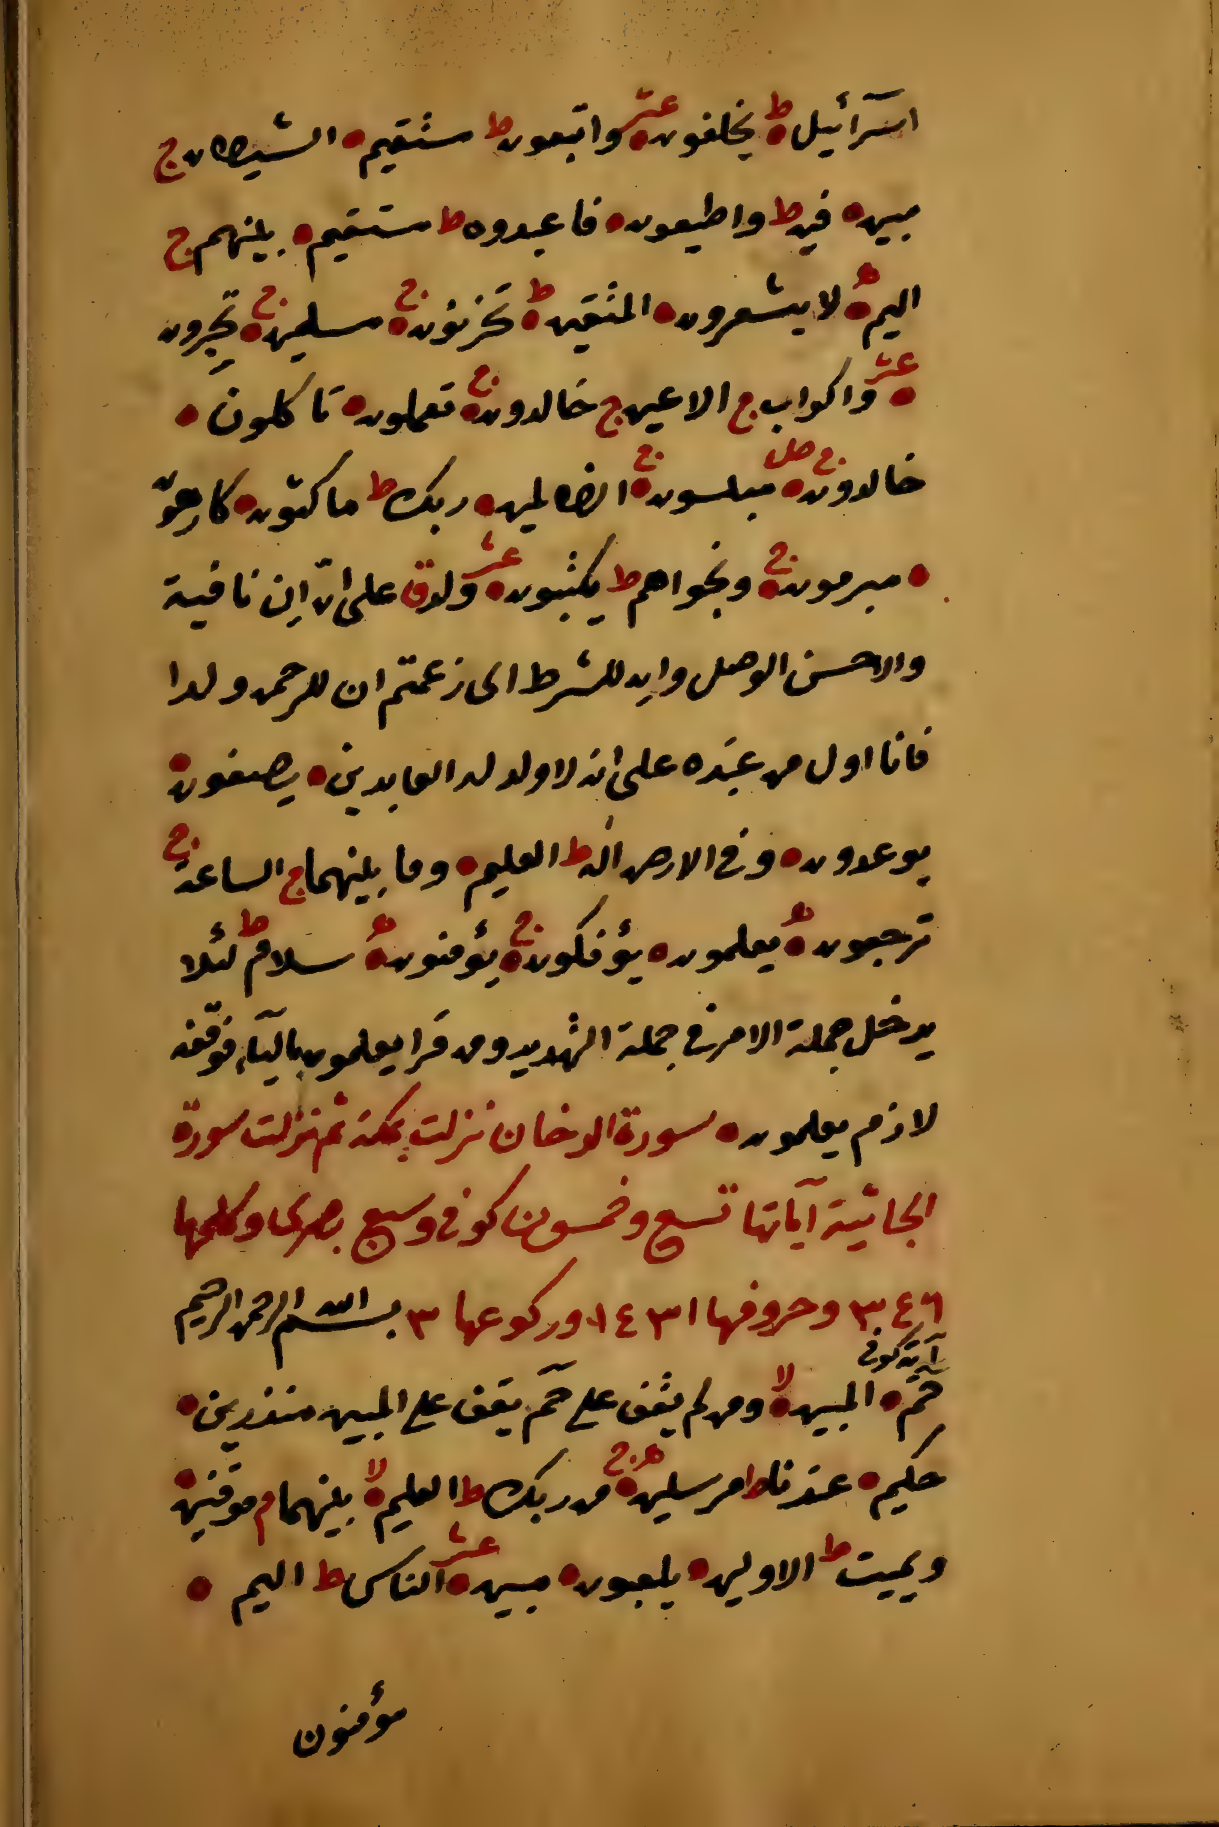 اسرآئيل ط يخلفون عشر واتبعون ط مستقيم الشيطان ج
مبين فيه ط واطيعون فاعبدوه ط مستقيم بينهم ج
اليم لا يشعرون المتقين ط تحزنون ج مسلمين ج تحبرون
عشر واكواب ج الاعين ج خالدون ج تعملون تاكلون
خالدون ج صل مبلسون ج الظالمين ربك ط ماكثون كارهون
مبرمون ج ونجواهم ط يكتبون عشر ولد ق على انّ اِن نافية
والاحسن الوصل وان للشرط اى زعمتم ان للرحمن ولدا
فانا اول من عبَده على انه لا ولد له العابدين يصفون
يوعدون وفى الارض اله ط العليم وما بينهما ج الساعة ج
ترجعون يعلمون يؤفكون ج يؤمنون سلام ط لئلا
يدخل جملة الامر فى جملة التهديد ومن قرا يعلمون باليآء فوقفه
لازم يعلمون سورة الدخان نزلت بمكة ثم نزلت سورة
الجاثية آياتها تسع وخمسون كوفى وسبع بصرى وكلمها
٣٤٦ وحروفها ١٤٣١ وركوعها ٣ بسم الله الرحمن الرحيم
آية كوفى
حٓم المبين لا ومن لم يقف على حٓم يقف على المبين منذرين
حكيم عندنا ط مرسلين ج من ربك ط العليم لا بينهما م موقنين
ويميت ط الاولين يلعبون مبين عشر الناس ط اليم
مؤمنون